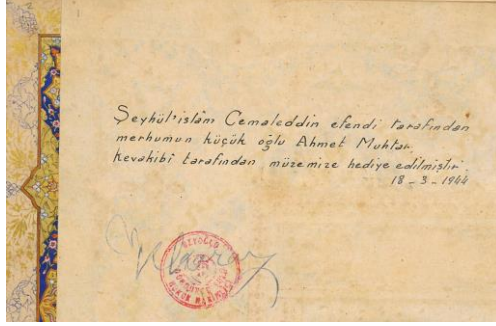 Şeyhül'islâm Cemaleddin efendi tarafından
merhumun küçük oğlu Ahmet Muhtar
kevakibî tarafından müzemize hediye edilmiştir.
18-3-1944
BEYOĞLU